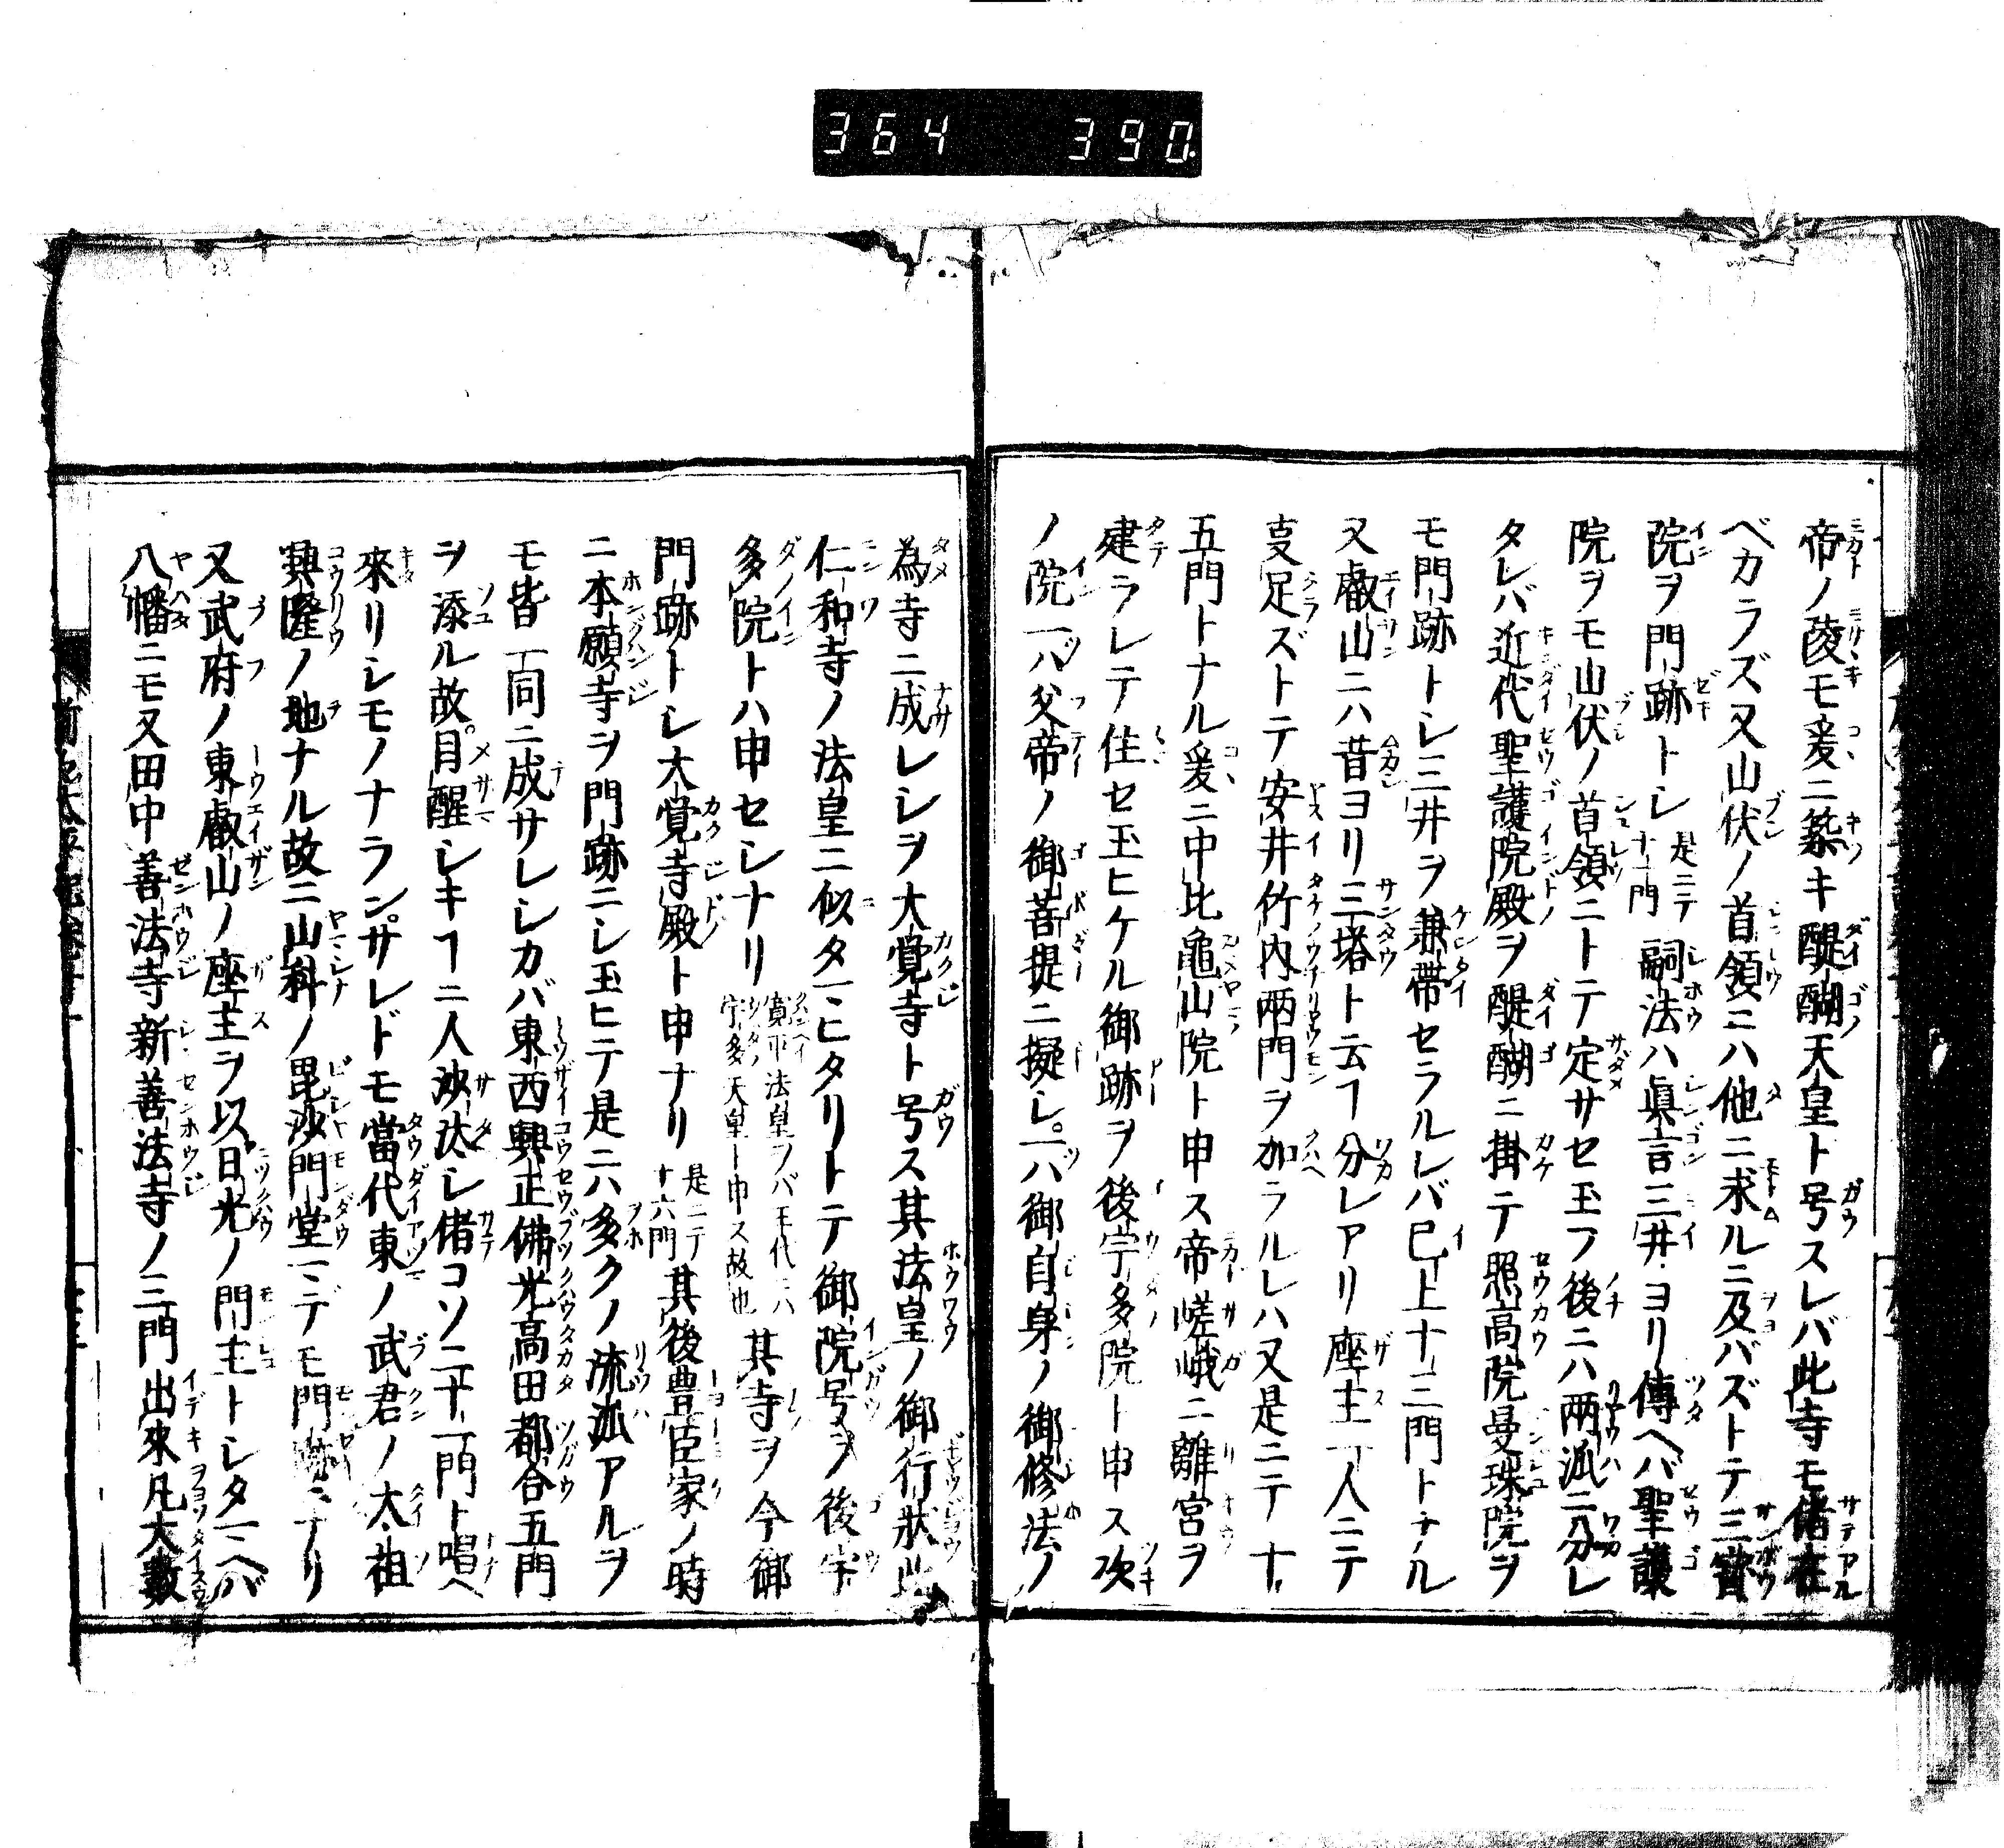 364 390
帝ノ陵モ爰ニ築キ醍醐天皇ト号スレバ此寺モ偖在
ベカラズ又山伏ノ首領ニハ他ニ求ルニ及バズトテ三寳
院ヲ門跡トシ是ニテ十一門嗣法ハ眞言三井ヨリ傳ヘバ聖護
院ヲモ山伏ノ首領ニトテ定サセ玉フ後ニハ两流ニ分レ
タレバ近代聖護院殿ヲ醍醐ニ掛テ照高院曼珠院ヲ
モ門跡トシ三井ヲ兼帶セラルレバ已上十三門トナル
又叡山ニハ昔ヨリ三塔ト云フ分レアリ座主一人ニテ
叓足ズトテ安井竹内两門ヲ加ラルレハ又是ニテ十
五門トナル爰ニ中比亀山院ト申ス帝嵯峨ニ離宮ヲ
建ラレテ住セ玉ヒケル御跡ヲ後宇多院ト申ス次
ノ院一ハ父帝ノ御菩提ニ擬シ一ハ御自身ノ御修法ノ
為寺ニ成レシヲ大覚寺ト号ス其法皇ノ御行状此
仁和寺ノ法皇ニ似タマヒタリトテ御院号ヲ後宇
多院トハ申セシナリ寛平法皇ヲバ王代ニハ宇多天皇ト申ス故也其寺ヲ今御
門跡トシ大覚寺殿ト申ナリ是ニテ十六門其後豊臣家ノ時
ニ本願寺ヲ門跡ニシ玉ヒテ是ニハ多クノ流派アルヲ
モ皆一同ニ成サレシカバ東西興正佛光高田都合五門
ヲ添ル故目醒シキフニ人沙汰シ偖コソ二十一門ト唱ヘ
來リシモノナランサレドモ當代東ノ武君ノ太祖
興隆ノ地ナル故ニ山科ノ毘沙門堂マデモ門跡ニナリ
又武府ノ東叡山ノ座主ヲ以日光ノ門主トシタマヘバ
八幡ニモ又田中善法寺新善法寺ノ三門出來凡大數